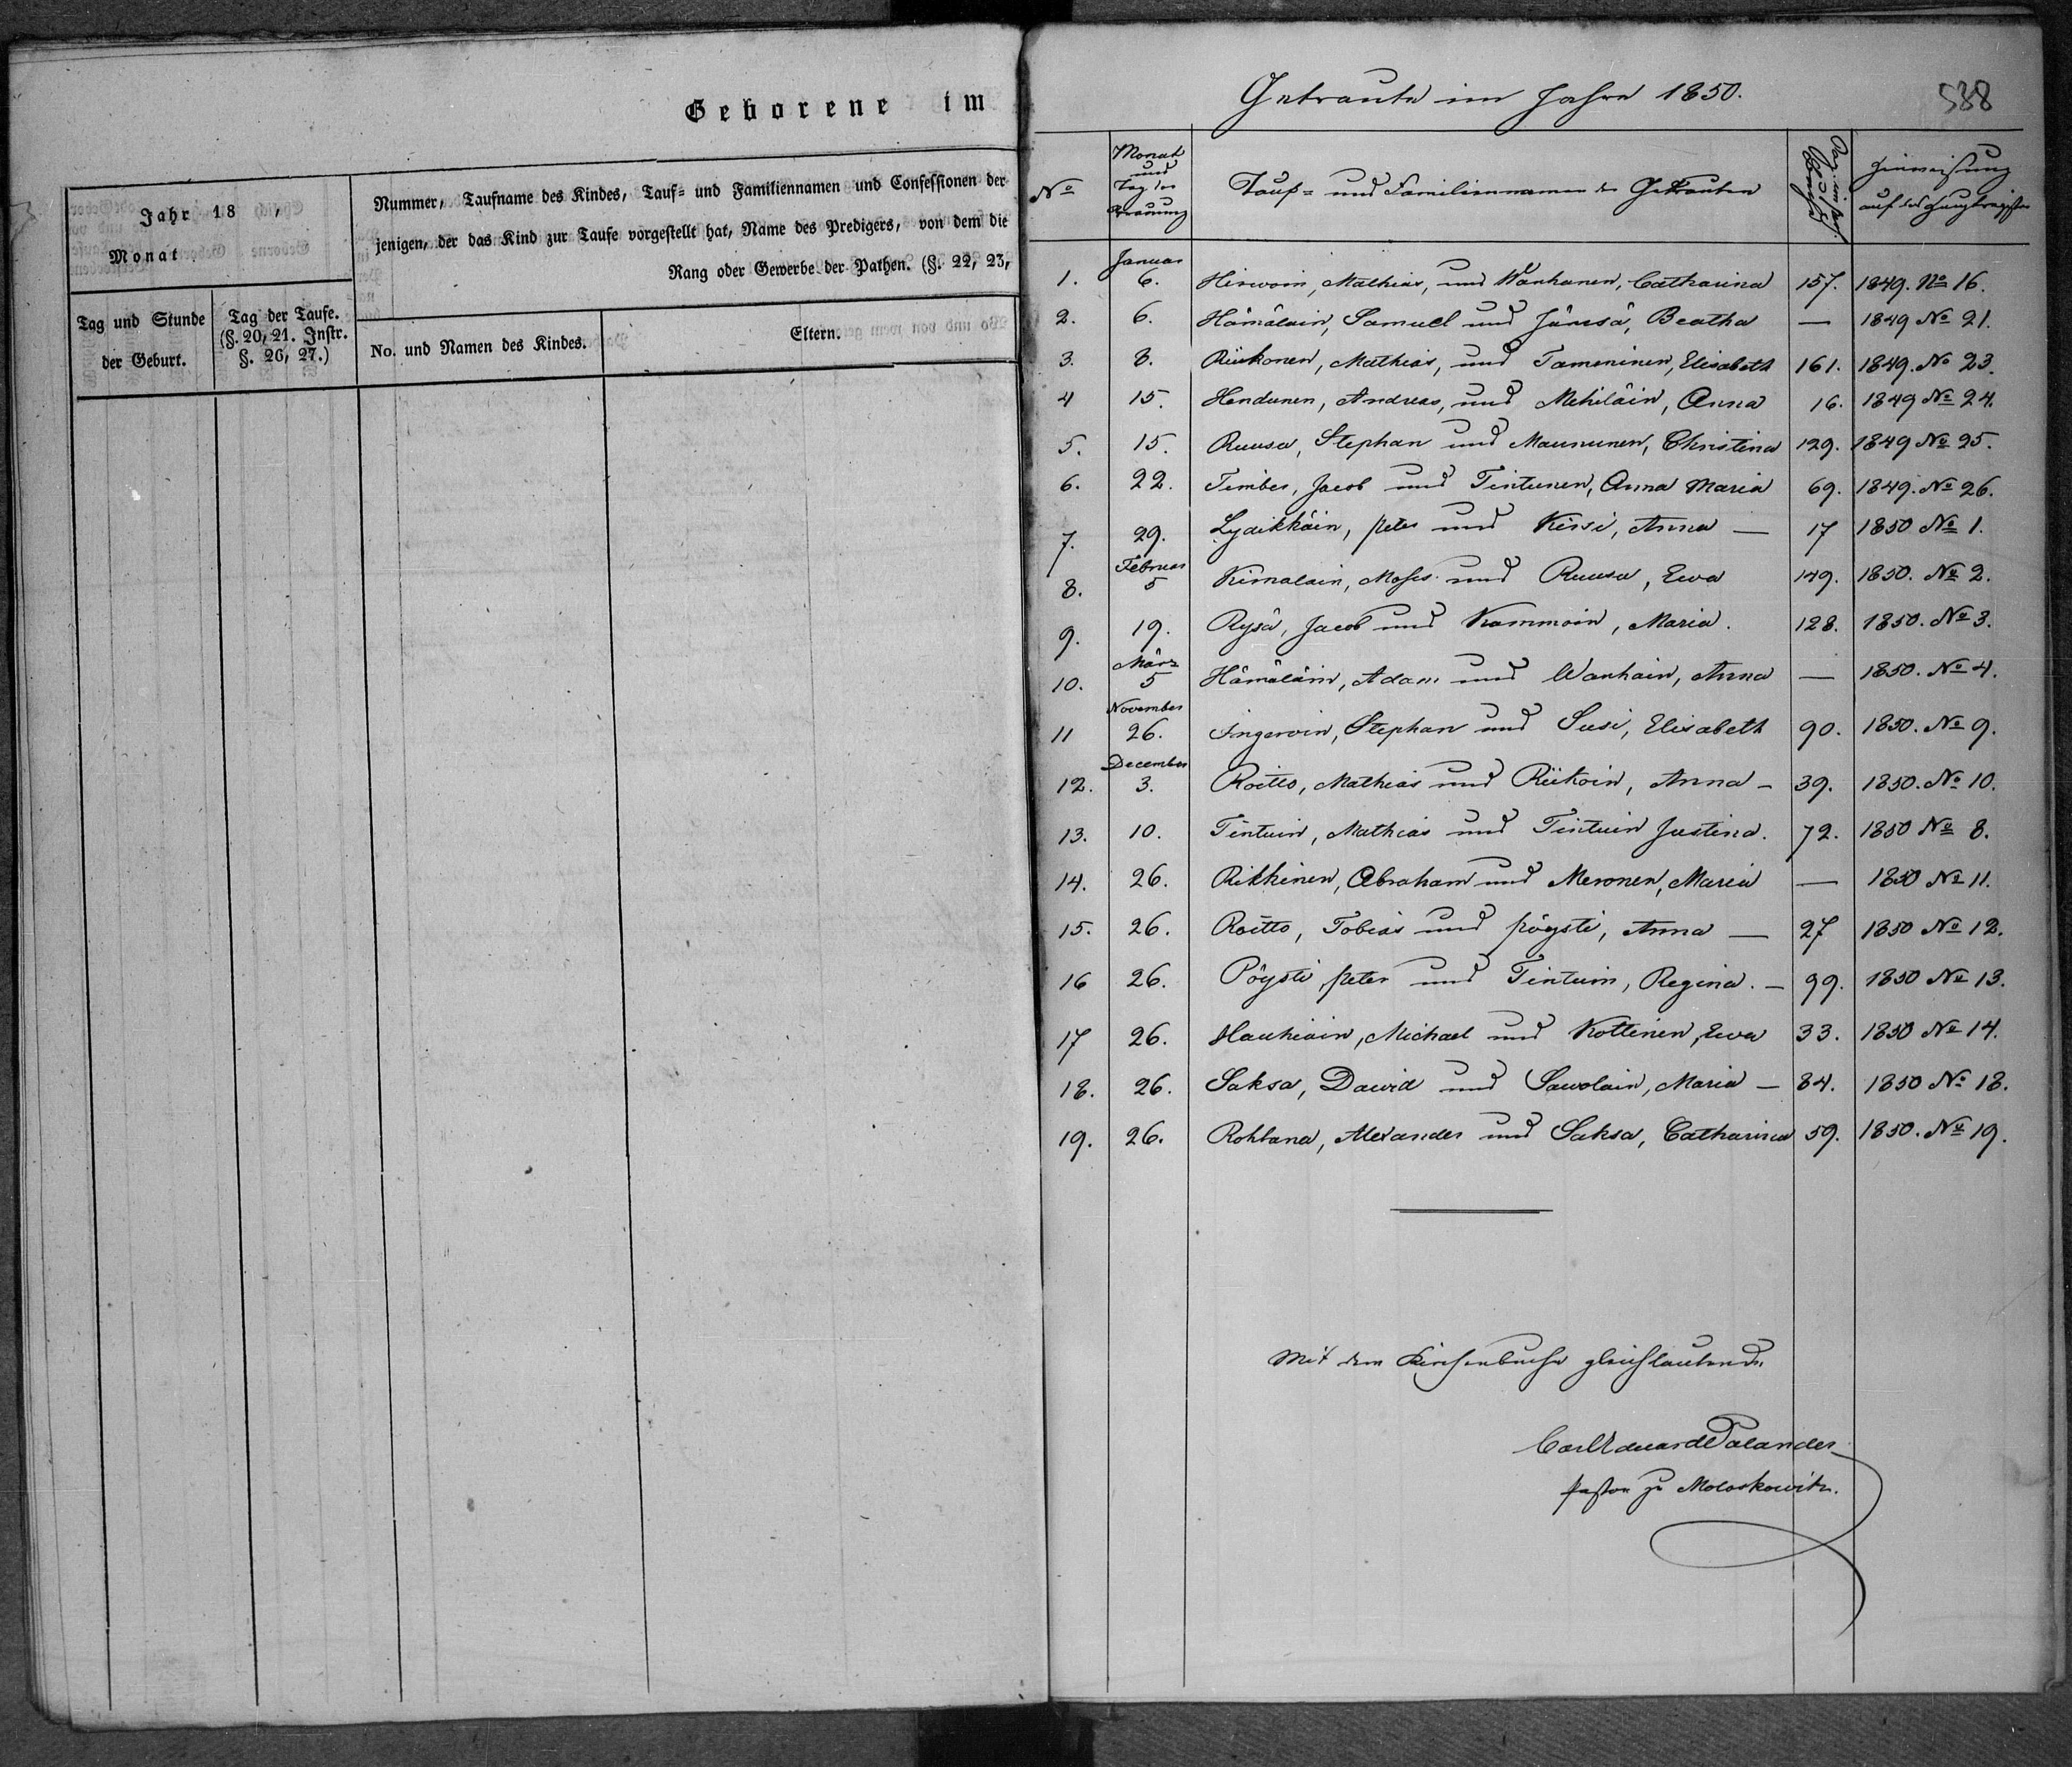 Geborene im
Jahr 18 ,
Monat
Nummer, Taufname des Kindes, Tauf- und Familiennamen und Confessionen der
jenigen, der das Kind zur Taufe vorgestellt hat, Name des Predigers, von dem die
Rang oder Gewerbe der Pathen. (§. 22, 23,
Tag und Stunde
der Geburt.
Tag der Taufe.
(§. 20, 21. Instr.
§. 26, 27.)
No. und Namen des Kindes.
Eltern.
Getraute im Jahre 1850.
588
No
Monat
und
Tag der
Trauung
Tauf- und Familiennamen der Getrauten
Hinweisung
auf das Hauptregister
Januar
1. 6. Hirwoin, Mathias, und Wanhanen, Catharina 157. 1849. No 16.
2. 6. Hämäläin, Samuel und Jämsä, Beatha — 1849 No 21.
3. 8. Riikonen, Mathias, und Tamminen, Elisabeth 161. 1849. No 23.
4 15. Hendunen, Andreas, und Mehiläin, Anna 16. 1849 No 24.
5. 15. Ruusa, Stephan und Maununen, Christina 129. 1849 No 25.
6. 22. Timber, Jacob und Tintunen, Anna Maria 69. 1849. No 26.
7. 29. Lydikkäin, Peter und Kissi, Anna — 17 1850 No 1.
Februar
8. 5 Kimalain, Moses und Ruusa, Ewa 149. 1850. No 2.
9. 19. Rysä, Jacob und Kammoin, Maria. 128. 1850. No 3.
März
10. 5 Hämäläin, Adam und Wanhain, Anna — 1850. No 4.
November
11 26. Ingervin, Stephan und Susi, Elisabeth 90. 1850. No 9.
December
12. 3. Roitto, Mathias und Riikoin, Anna — 39. 1850. No 10.
13. 10. Tintuin, Mathias und Tintuin Justina. 72. 1850 No 8.
14. 26. Rikkinen, Abraham und Meronen, Maria — 1850 No 11.
15. 26. Roitto, Tobias und Pöysti, Anna — 27 1850 No 12.
16 26. Pöysti, Peter und Tintuin, Regina. — 99. 1850 No 13.
17 26. Hauhiain, Michael und Kottinen, Ewa 33. 1850 No 14.
18. 26. Saksa, Dawid und Sawolain, Maria — 84. 1850 No 18.
19. 26. Rohlana, Alexander und Saksa, Catharina 59. 1850. No 19.
Mit dem Kirchenbuche gleichlautend.
Carl Eduard Palander
Pastor zu Moloskowitz.